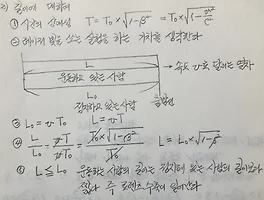 2) 길이에 대하여
① 시간의 상대성 T = T₀ × √(1-β²) = T₀ × √(1-v²/c²)
② 레이저 빛을 쏘는 실험을 하는 기차를 생각한다
L
운동하고 있는 사람
→ 속도 v로 달리는 열차
L₀
정지하고 있는 사람
플랫폼
③ L₀ = vT₀ L = vT
④ L/L₀ = vT/vT₀ = T₀ × √(1-β²)/T₀ L = L₀ × √(1-β²)
⑤ L ≤ L₀ 운동하는 사람의 길이는 정지해 있는 사람의 길이보다
짧다 즉 로렌츠 수축이 일어난다